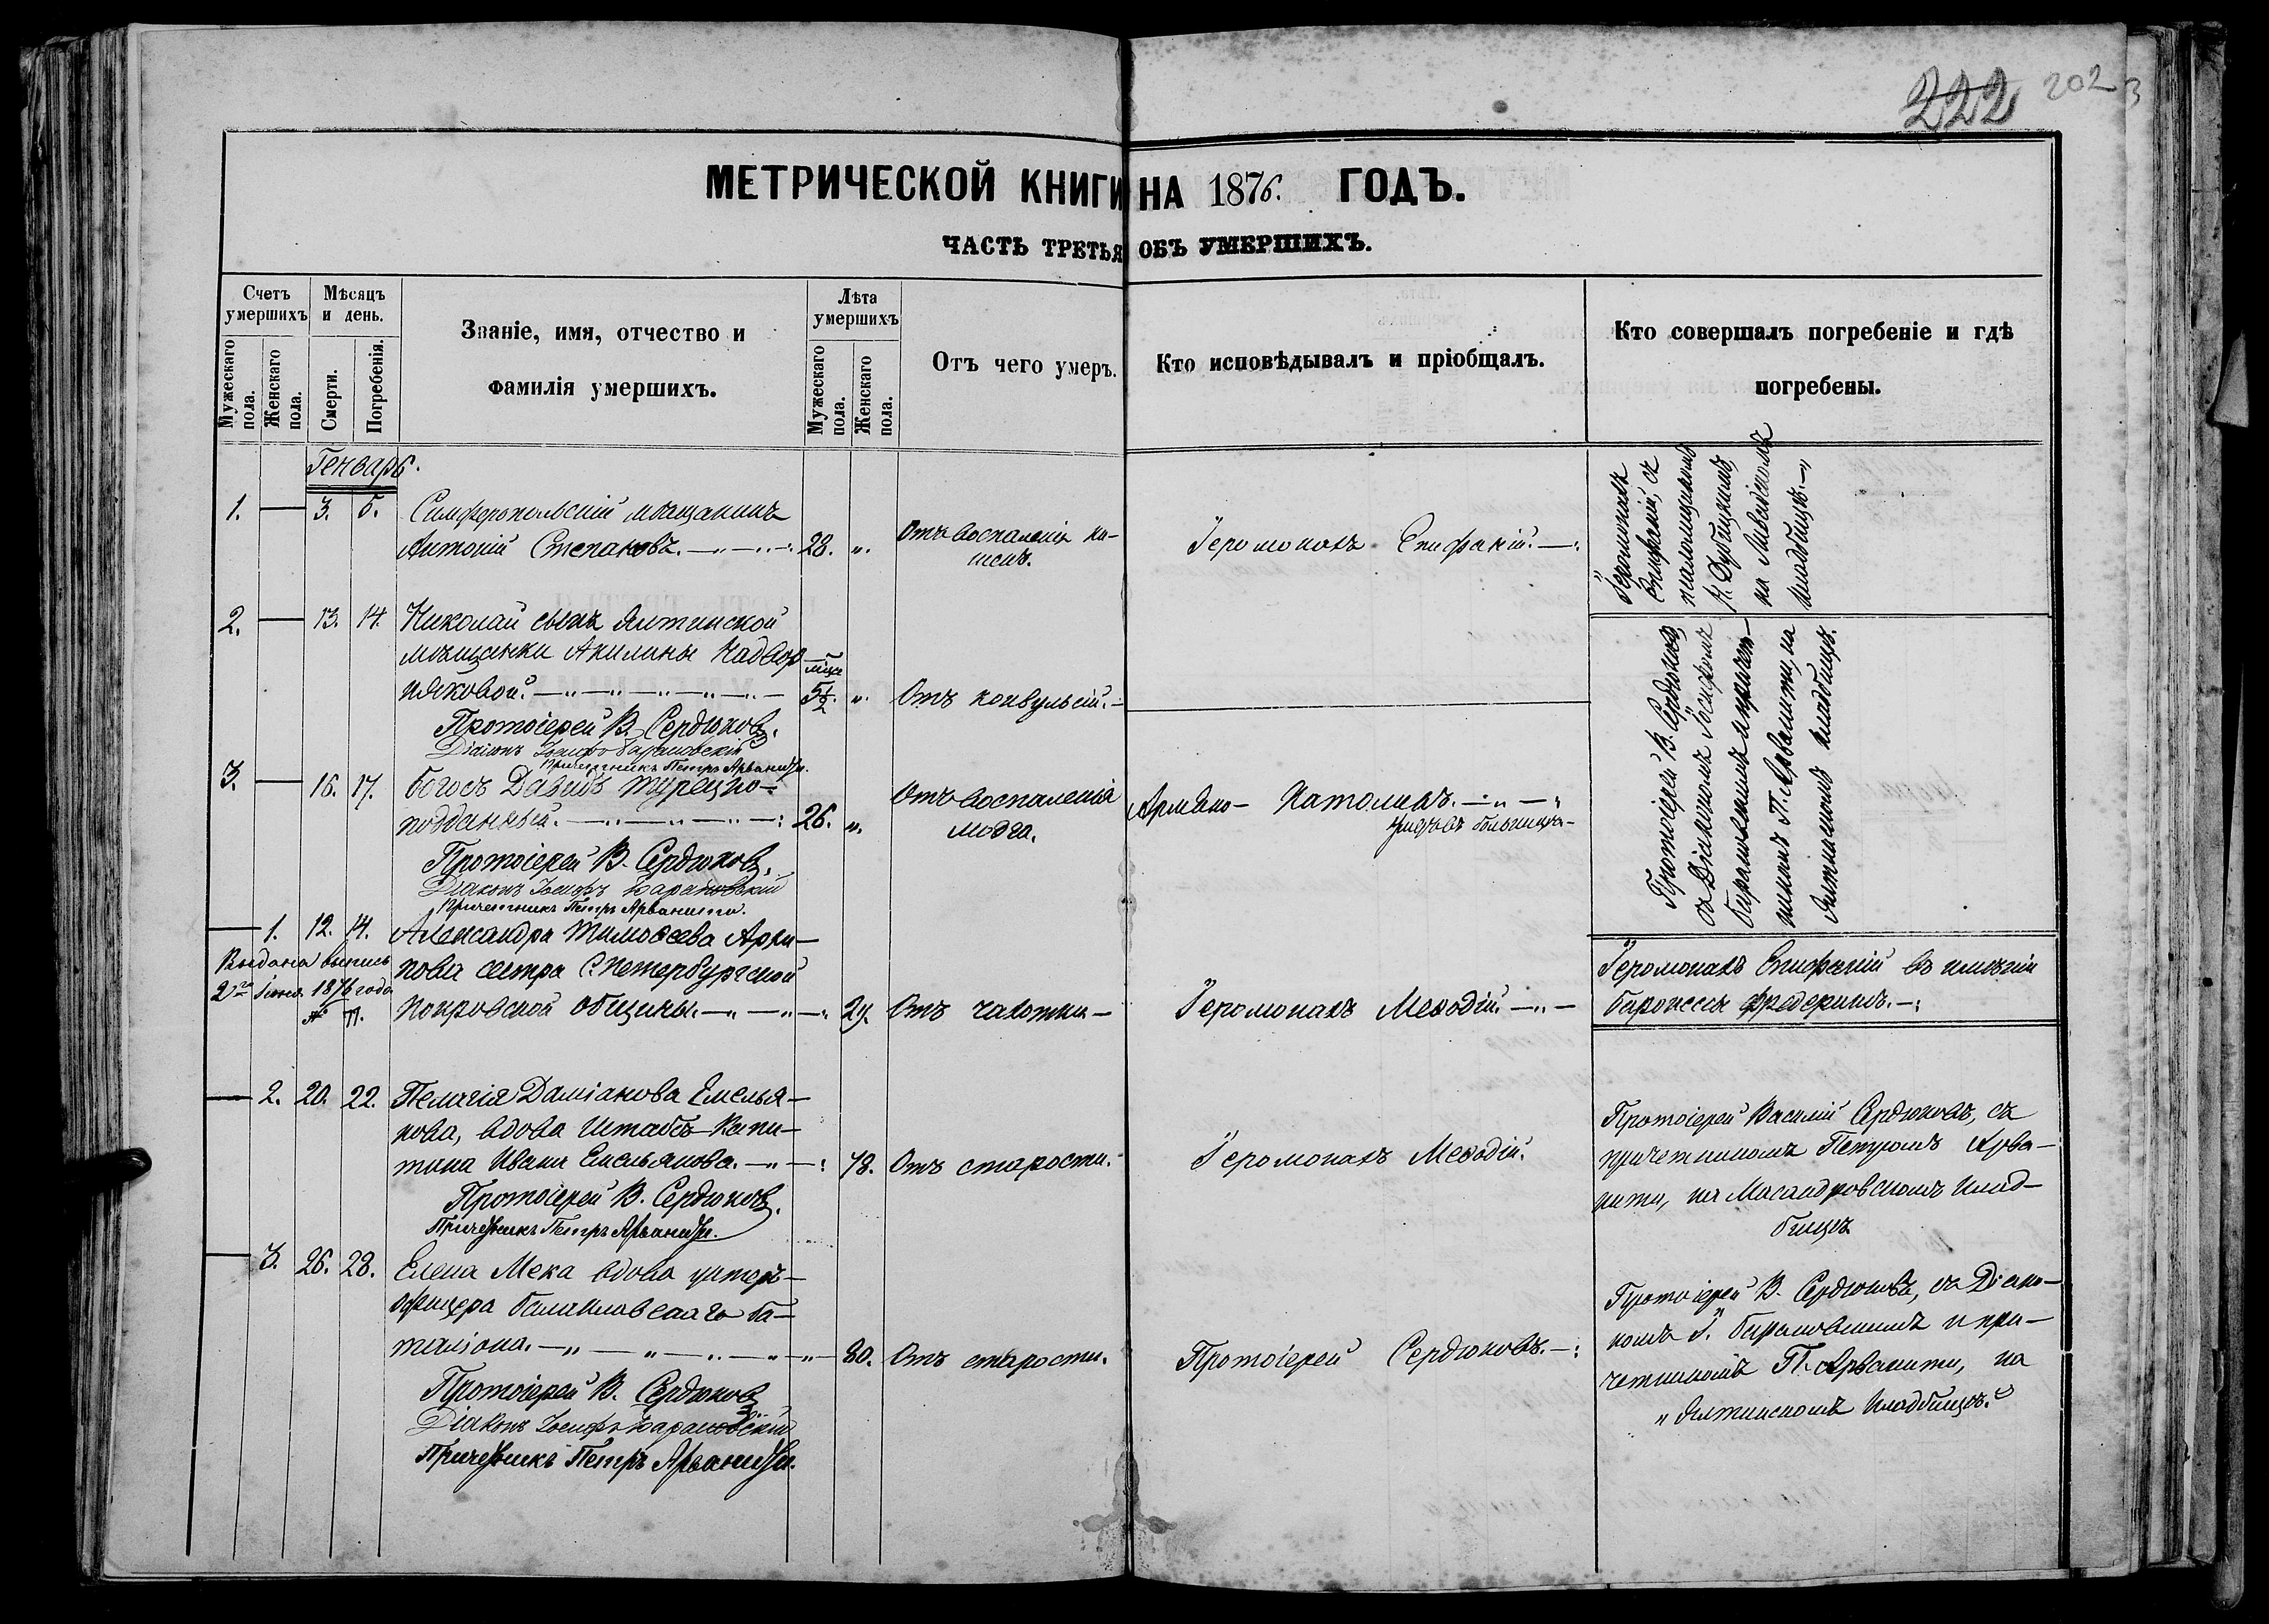 222 202
МЕТРИЧЕСКОЙ КНИГИ НА 1876. ГОДЪ.
ЧАСТЬ ТРЕТЬЯ ОБЪ УМЕРШИХЪ.
Счетъ умершихъ
Мужескаго пола.
Женскаго пола.
Мѣсяцъ и день.
Смерти.
Погребенія.
Званіе, имя, отчество и
фамилія умершихъ.
Лѣта умершихъ
Мужескаго пола.
Женскаго пола.
Отъ чего умеръ.
Кто исповѣдывалъ и пріобщалъ.
Кто совершалъ погребеніе и гдѣ
погребены.
Генварь.
1. — 3. 5. Симферопольскій мѣщанинъ
Антоній Степановъ. 28. „.
Отъ воспаленія ки-
шекъ.
Іеромонахъ Епифаній.
Іеромонахъ
Епифаній, съ
Дубицкимъ,
на Ливадійскомъ
кладбищѣ.
2. — 13. 14. Николай сынъ Ялтинской
мѣщанки Акилины Надвор-
няковой. мѣся. 5½. „. Отъ конвульсій.
Протоіерей В. Сердюковъ.
Діаконъ Іосифъ Барановскій
Причетникъ Петръ Арванити.
Протоіерей В. Сердюковъ,
съ Діакономъ Іосифомъ
Барановскимъ и причет-
никомъ П. Арванити, на
Ялтинскомъ кладбищѣ.
3. — 16. 17. Богосъ Давидъ турецко-
подданный. 26. „.
Отъ воспаленія
мозга.
Армяно- Католикъ.
Протоіерей В. Сердюковъ.
Діаконъ Іосифъ Барановскій
Причетникъ Петръ Арванити.
— 1. 12. 14. Александра Тимоѳеева Архи-
пова сестра С. Петербургской
Покровской общины. 27. Отъ чахотки —
Выдана выпись
2го Іюня 1876 года
№ 77.
Іеромонахъ Меѳодій.
Іеромонахъ Епифаній въ имѣніи
баронессы Фредериксъ.
— 2. 20. 22. Пелагія Даміанова Емелья-
нова, вдова Штабсъ-Капи-
тана Ивана Емельянова. 78. Отъ старости.
Протоіерей В. Сердюковъ.
Причетникъ Петръ Арванити.
Іеромонахъ Меѳодій.
Протоіерей Василій Сердюковъ, съ
причетникомъ Петромъ Арва-
нити, на Масандровскомъ клад-
бищѣ
— 3. 26. 28. Елена Мека вдова унтеръ-
офицера Балаклавскаго ба-
таліона. 80. Отъ старости.
Протоіерей В. Сердюковъ
Діаконъ Іосифъ Барановскій
Причетникъ Петръ Арванити.
Протоіерей Сердюковъ.
Протоіерей В. Сердюковъ, съ Діако-
номъ І. Барановскимъ и при-
четникомъ П. Арванити, на
Ялтинскомъ кладбищѣ.